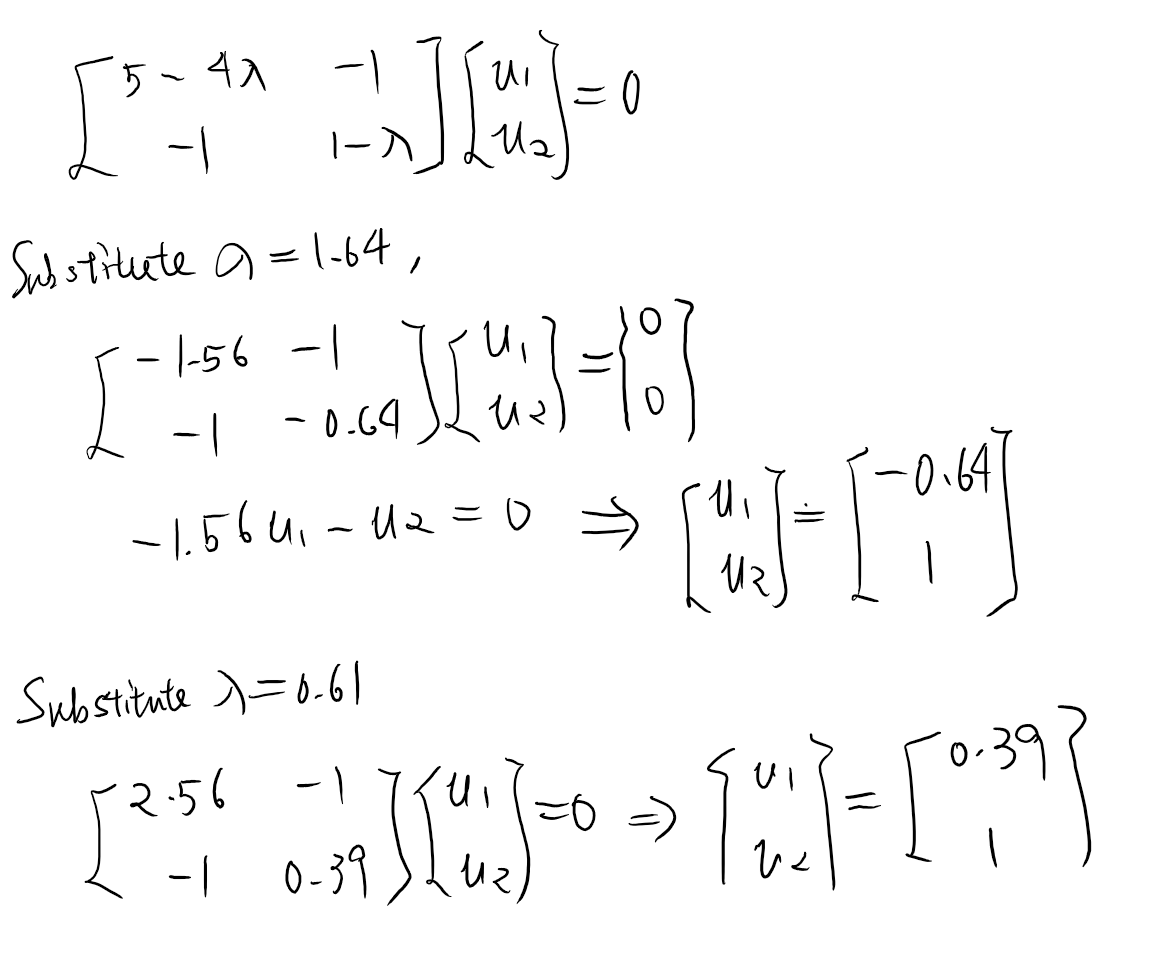 [5 - 4λ -1; -1 1-λ] [u1; u2] = 0
Substitute λ = 1.64,
[-1.56 -1; -1 -0.64] [u1; u2] = {0; 0}
-1.56 u1 - u2 = 0 ⇒ [u1; u2] = [-0.64; 1]
Substitute λ = 0.61
[2.56 -1; -1 0.39] [u1; u2] = 0 ⇒ {u1; u2} = [0.39; 1]